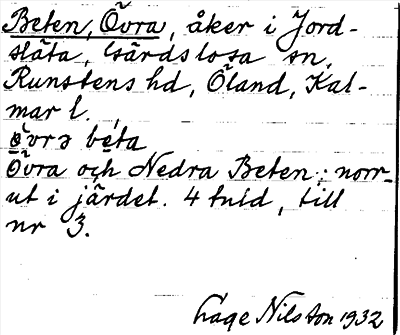 Beten, Övra, åker i Jord-
släta, Gärdslösa sn,
Runstens hd, Öland, Kal-
mar l.
øvrə beta
Övra och Nedra Beten; norr-
ut i järdet. 4 tnld, till
nr 3.
Låge Nilsson 1932